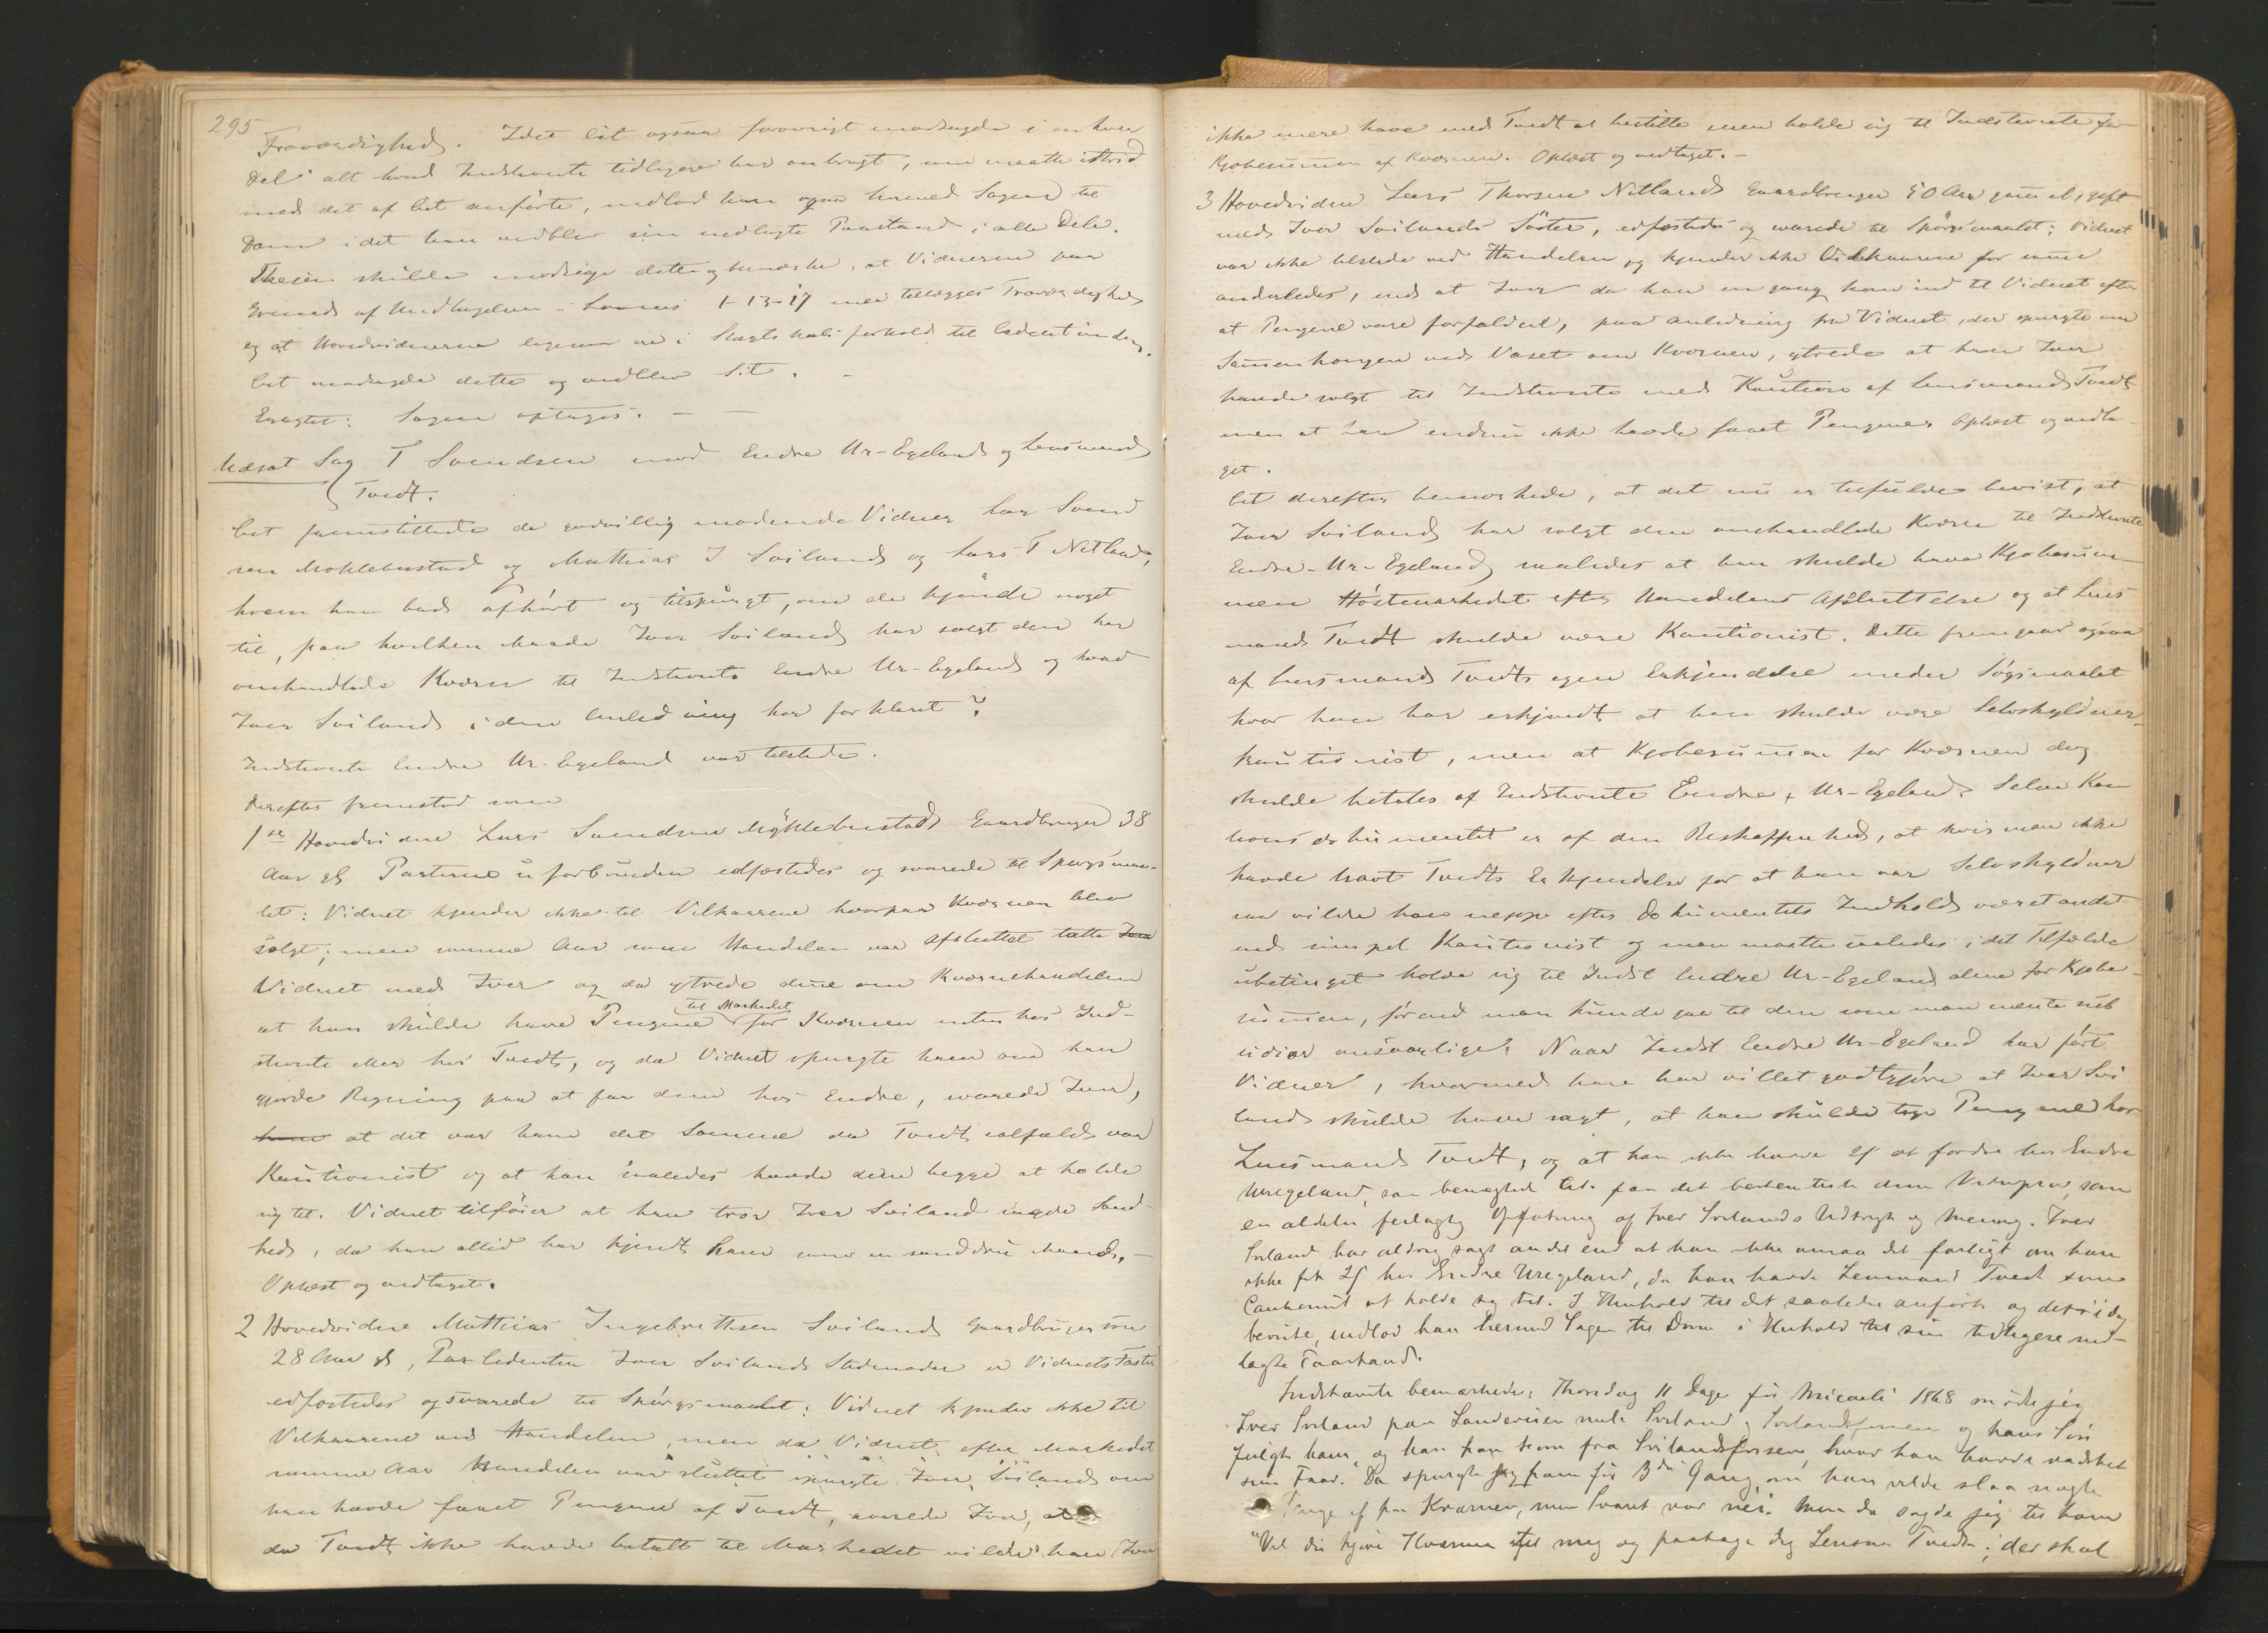 295
Troværdighed. Idet Cit ogsaa forøvrigt modsagde i enhver
Del alt hvad Indstevnte tidligere har anbragt, som maatte i Strid
med det af Cit anførte, indlod han ogsaa hermed Sagen til
Dom i det han vedblev sin nedlagte Paastand i alle Dele.
Thesen skulde modsige dette og bemærke, at Vidnerne paa
Grund af Undtagelsen i Lovens 1-13-17 mea tillægges Troværdighed
og at Hovedvidnerne ligesom ere i Slagtskabsforhold til
Cit modsagde dette og vedblev Sit. —
Eragtet: Sagen optages. — —
Udsat Sag T Svendsen mod Endre Ur-Egeland og Lensmand
Tvedt.
Cit fremstillede de godvillig mødende Vidner Lars Svend
sen Møklebustad og Mathias I Soiland og Lars T Netland,
hvem han bad afhørt og tilspurgt, om de kjende noget
til, paa hvilken Maade Iver Soiland har solgt den her
omhandlede Kværn til Indstevnte Endre Ur-Egeland og hvad
Iver Soiland i den Anledning har forklaret?
Indstevnte Endre Ur-Egeland var tilstede.
Derefter fremstod som
1ste Hovedvidne Lars Svendsen Møklebustad Gaardbruger 38
Aar gl Parterne uforbunden edfæstedes og svarede til Spørgsmaa-
let: Vidnet kjender ikke til Vilkaarene hvorpaa Kværnen blev
solgt; men samme Aar som Handelen var afsluttet talte Iver
Vidnet med Iver og da ytrede denne om Kværnehandelen
at han skulde have Pengene til Markedet for Kværnen enten hos Ind-
stevnte eller hos Tvedt, og da Vidnet spurgte ham om han
gjorde Regning paa at faa dem hos Endre, svarede Iver,
ham at det var ham det Samme da Tvedt ialfald var
Kautionist og at han saaledes havde dem begge at holde
sig til. Vidnet tilføier at han tror Iver Soiland sagde Sand-
hed, da han altid har kjendt ham som en sanddru Mand. —
Oplæst og vedtaget.
2 Hovedvidne Mathias Ingebrethsen Soiland Gaardbrugersøn
28 Aar gl, Pavledenten Iver Soilands Stedmoder er Vidnets Faster
edfæstedes og svarede til Spørgsmaalet: Vidnet kjender ikke til
Vilkaarene ved Handelen, men da Vidnet efter Markedet
samme Aar Handelen var sluttet spurgte Iver Soiland om
han havde faaet Pengene af Tvedt, svarede Iver, at
da Tvedt ikke havde betalt til Markedet vilde han Iver
ikke mere have med Tvedt at bestille men holde sig til Indstevnte for
Kjøbesummen af Kværnen. Oplæst og vedtaget. —
3 Hovedvidne Lars Thorsen Netland Gaardbruger 50 Aar gammel, gift
med Iver Soilands Søster, edfæstedes og svarede til Spørgsmaalet: Vidnet
var ikke tilstede ved Handelen og kjender ikke Vilkaarene for samme
anderledes, end at Iver da han engang kom ind til Vidnet efter
at Pengene vare forfaldne, paa Anledning fra Vidnet, der spurgte om
Sammenhængen med Væset om Kværnen, ytrede at han Iver
havde solgt til Indstevnte med Kaution af Lensmand Tvedt
men at han endnu ikke havde faaet Pengene. Oplæst og vedta-
get.
Cit derefter bemærkede, at det nu er tilfulde bevist, at
Iver Soiland har solgt den omhandlede Kværn til Indstevnte
Endre Ur-Egeland saaledes at han skulde have Kjøbesum-
men Høstmarkedet efter Handelens Afsluttelse og at Lens
mand Tvedt skulde være Kautionist. Dette fremgaar ogsaa
af Lensmand Tvedts egen Erkjendelse under Søgsmaalet
hvor han har erkjendt at han skulde være Selvskyldner-
kautionist, men at Kjøbesummen for Kværnen dog
skulde betales af Indstevnte Endre Ur-Egeland. Selve Kau
tionsdokumentet er af den Beskaffenhed, at hvis man ikke
havde havt Tvedts Erkjendelse for at han var Selvskyldner
saa vilde han neppe efter Dokumentets Indhold været andet
end simpel Kautionist og man maatte saaledes i det Tilfælde
ubetinget holde sig til Indst Endre Ur-Egeland alene for Kjøbe-
summen, førend man kunde gaa til den som man mente sub
sidiær ansvarlige. Naar Indst Endre Ur-Egeland har ført
Vidner, hvormed han har villet godtgjøre at Iver Soi
land skulde have sagt, at han skulde tage Pengene hos
Lensmand Tvedt, og at han ikke havde 2f at fordre hos Endre
Uregeland, saa benegted Cit. paa det bestemteste dem som
en aldeles feilagtig Opfatning af Iver Soilands Udtryk og Mening. Iver
Soiland har aldrig sagt andet end at han ikke ansaa det farligt om han
ikke fik 2f hos Endre Uregeland, da han havde Lensmand Tvedt som
Cautionist at holde sig til. I Henhold til det saaledes anførte og det i dag
beviste, indlod han hermed Sagen til Dom i Henhold til sin tidligere ned-
lagte Paastand.
Indstævnte bemærkede: Thorsdag 11 Dage før Micaeli 1868 mødte jeg
Iver Soiland paa Sandveien mell. Soiland og Soilandsfossen og hans Søn
fulgte ham, og han kom fra Soilandsfossen, hvor han havde vadsket
sine Faar. Da spurgte jeg ham for 3die Gang, om han vilde slaa nogle
Penge af paa Kværnen, men Svaret var nei. Men da sagde jeg til ham
"Vil du kjøre Kværnen til mig og paatage dig Lensm. Tvedt; der skal